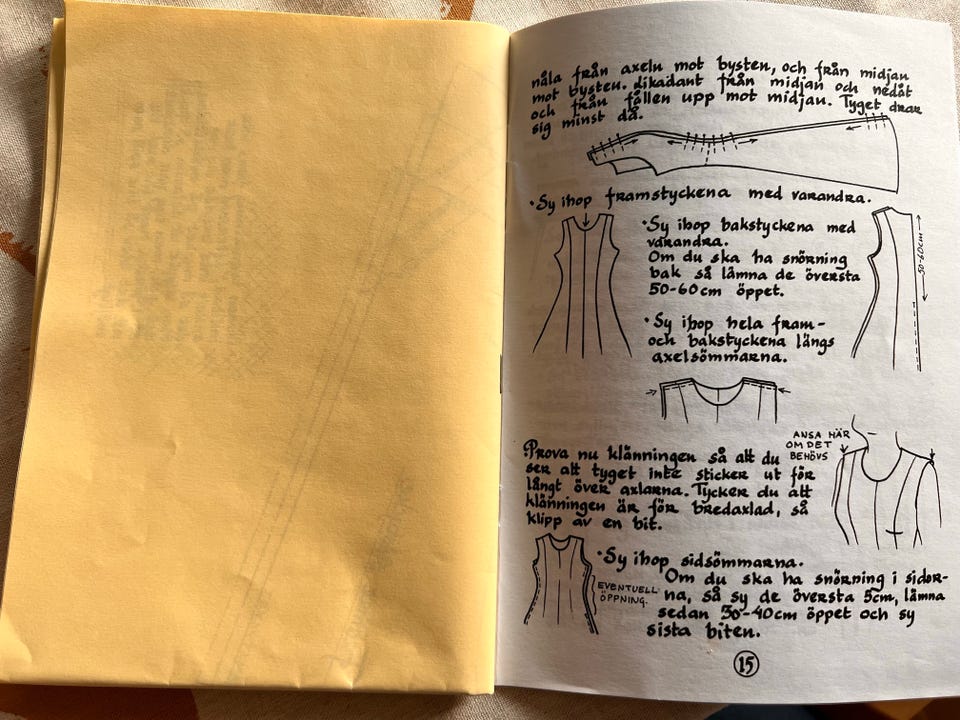 nåla från axeln mot bysten, och från midjan
mot bysten. Likadant från midjan och nedåt
och från fållen upp mot midjan. Tyget drar
sig minst då.
•Sy ihop framstyckena med varandra.
•Sy ihop bakstyckena med
varandra.
Om du ska ha snörning
bak så lämna de översta
50-60cm öppet.
50-60cm
•Sy ihop hela fram-
och bakstyckena längs
axelsömmarna.
ANSA HÄR
OM DET
BEHÖVS
•Prova nu klänningen så att du
ser att tyget inte sticker ut för
långt över axlarna. Tycker du att
klänningen är för bredaxlad, så
klipp av en bit.
•Sy ihop sidsömmarna.
Om du ska ha snörning i sidor-
na, så sy de översta 5cm, lämna
sedan 30-40cm öppet och sy
sista biten.
EVENTUELL
ÖPPNING.
15